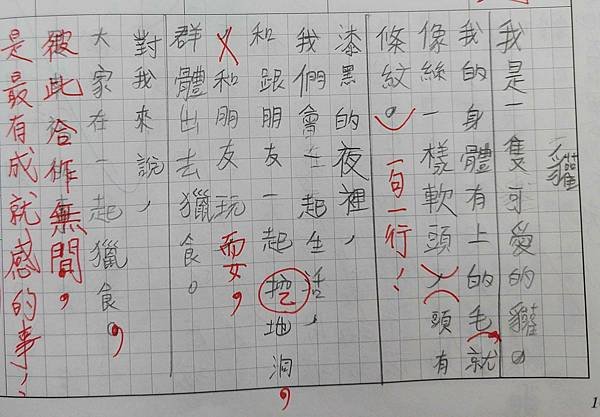 獾
我是一隻可愛的獾。
我的身體有上的毛，就
像絲一樣軟頭，頭有
條紋。一句一行！
漆黑的夜裡，
我們會在一起生活，
和跟朋友一起挖地洞，
和朋友玩耍，
群體出去獵食。
對我來說，
大家在一起獵食。，
彼此合作無間，
是最有成就感的事！